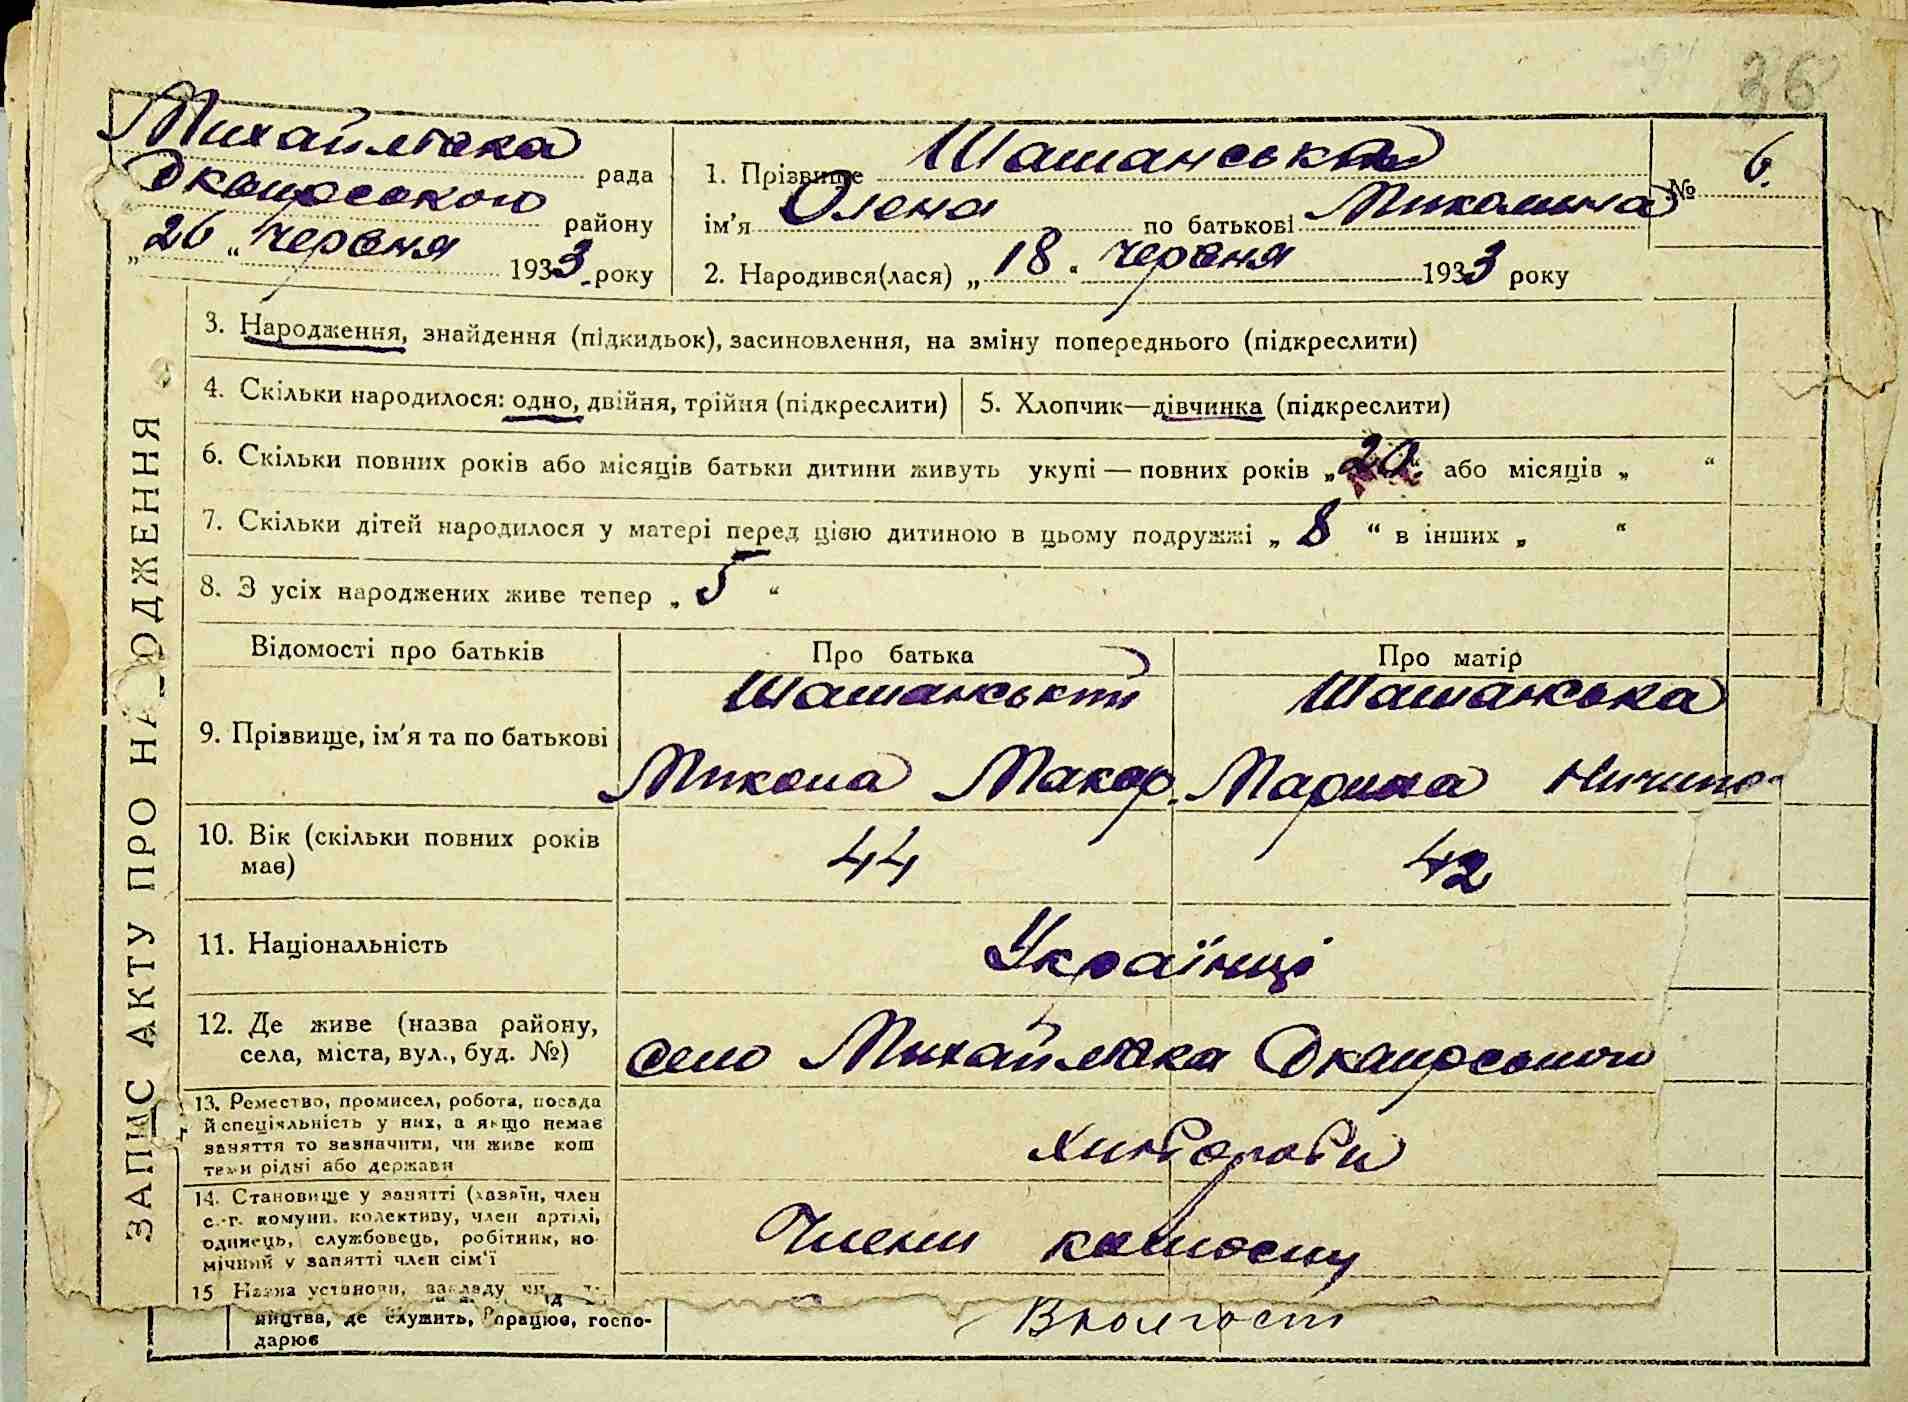 36
Михайлівка рада
району
„26“ червня 1933 року
1. Прізвище Шашанський
ім'я Олена по батькові Миколина
№ 6.
2. Народився(лася) „18“ червня 1933 року
ЗАПИС АКТУ ПРО НАРОДЖЕННЯ
3. Народження, знайдення (підкидьок), засиновлення, на зміну попереднього (підкреслити)
4. Скільки народилося: одно, двійня, трійня (підкреслити) 5. Хлопчик—дівчинка (підкреслити)
6. Скільки повних років або місяців батьки дитини живуть укупі — повних років „20“ або місяців „ “
7. Скільки дітей народилося у матері перед цією дитиною в цьому подружжі „8“ в інших „ “
8. З усіх народжених живе тепер „5“
Відомості про батьків Про батька Про матір
Шашанський Шашанська
9. Прізвище, ім'я та по батькові
Микола Макар. Марина Ничипо
10. Вік (скільки повних років 44 42
має)
11. Національність Українці
12. Де живе (назва району,
села, міста, вул., буд. №) село Михайлівка
13. Ремество, промисел, робота, посада
й спеціяльність у них, а якщо немає
заняття то зазначити, чи живе кош
тами рідні або держави
Хлібороби
14. Становище у занятті (хазяїн, член
с.-г. комуни, колективу, член артілі,
одинець, службовець, робітник, по-
мічний у занятті член сім'ї
Члени колгоспу
15 Назва установи, закладу
ництва, де служить, працює, госпо-
дарює
В колгоспі